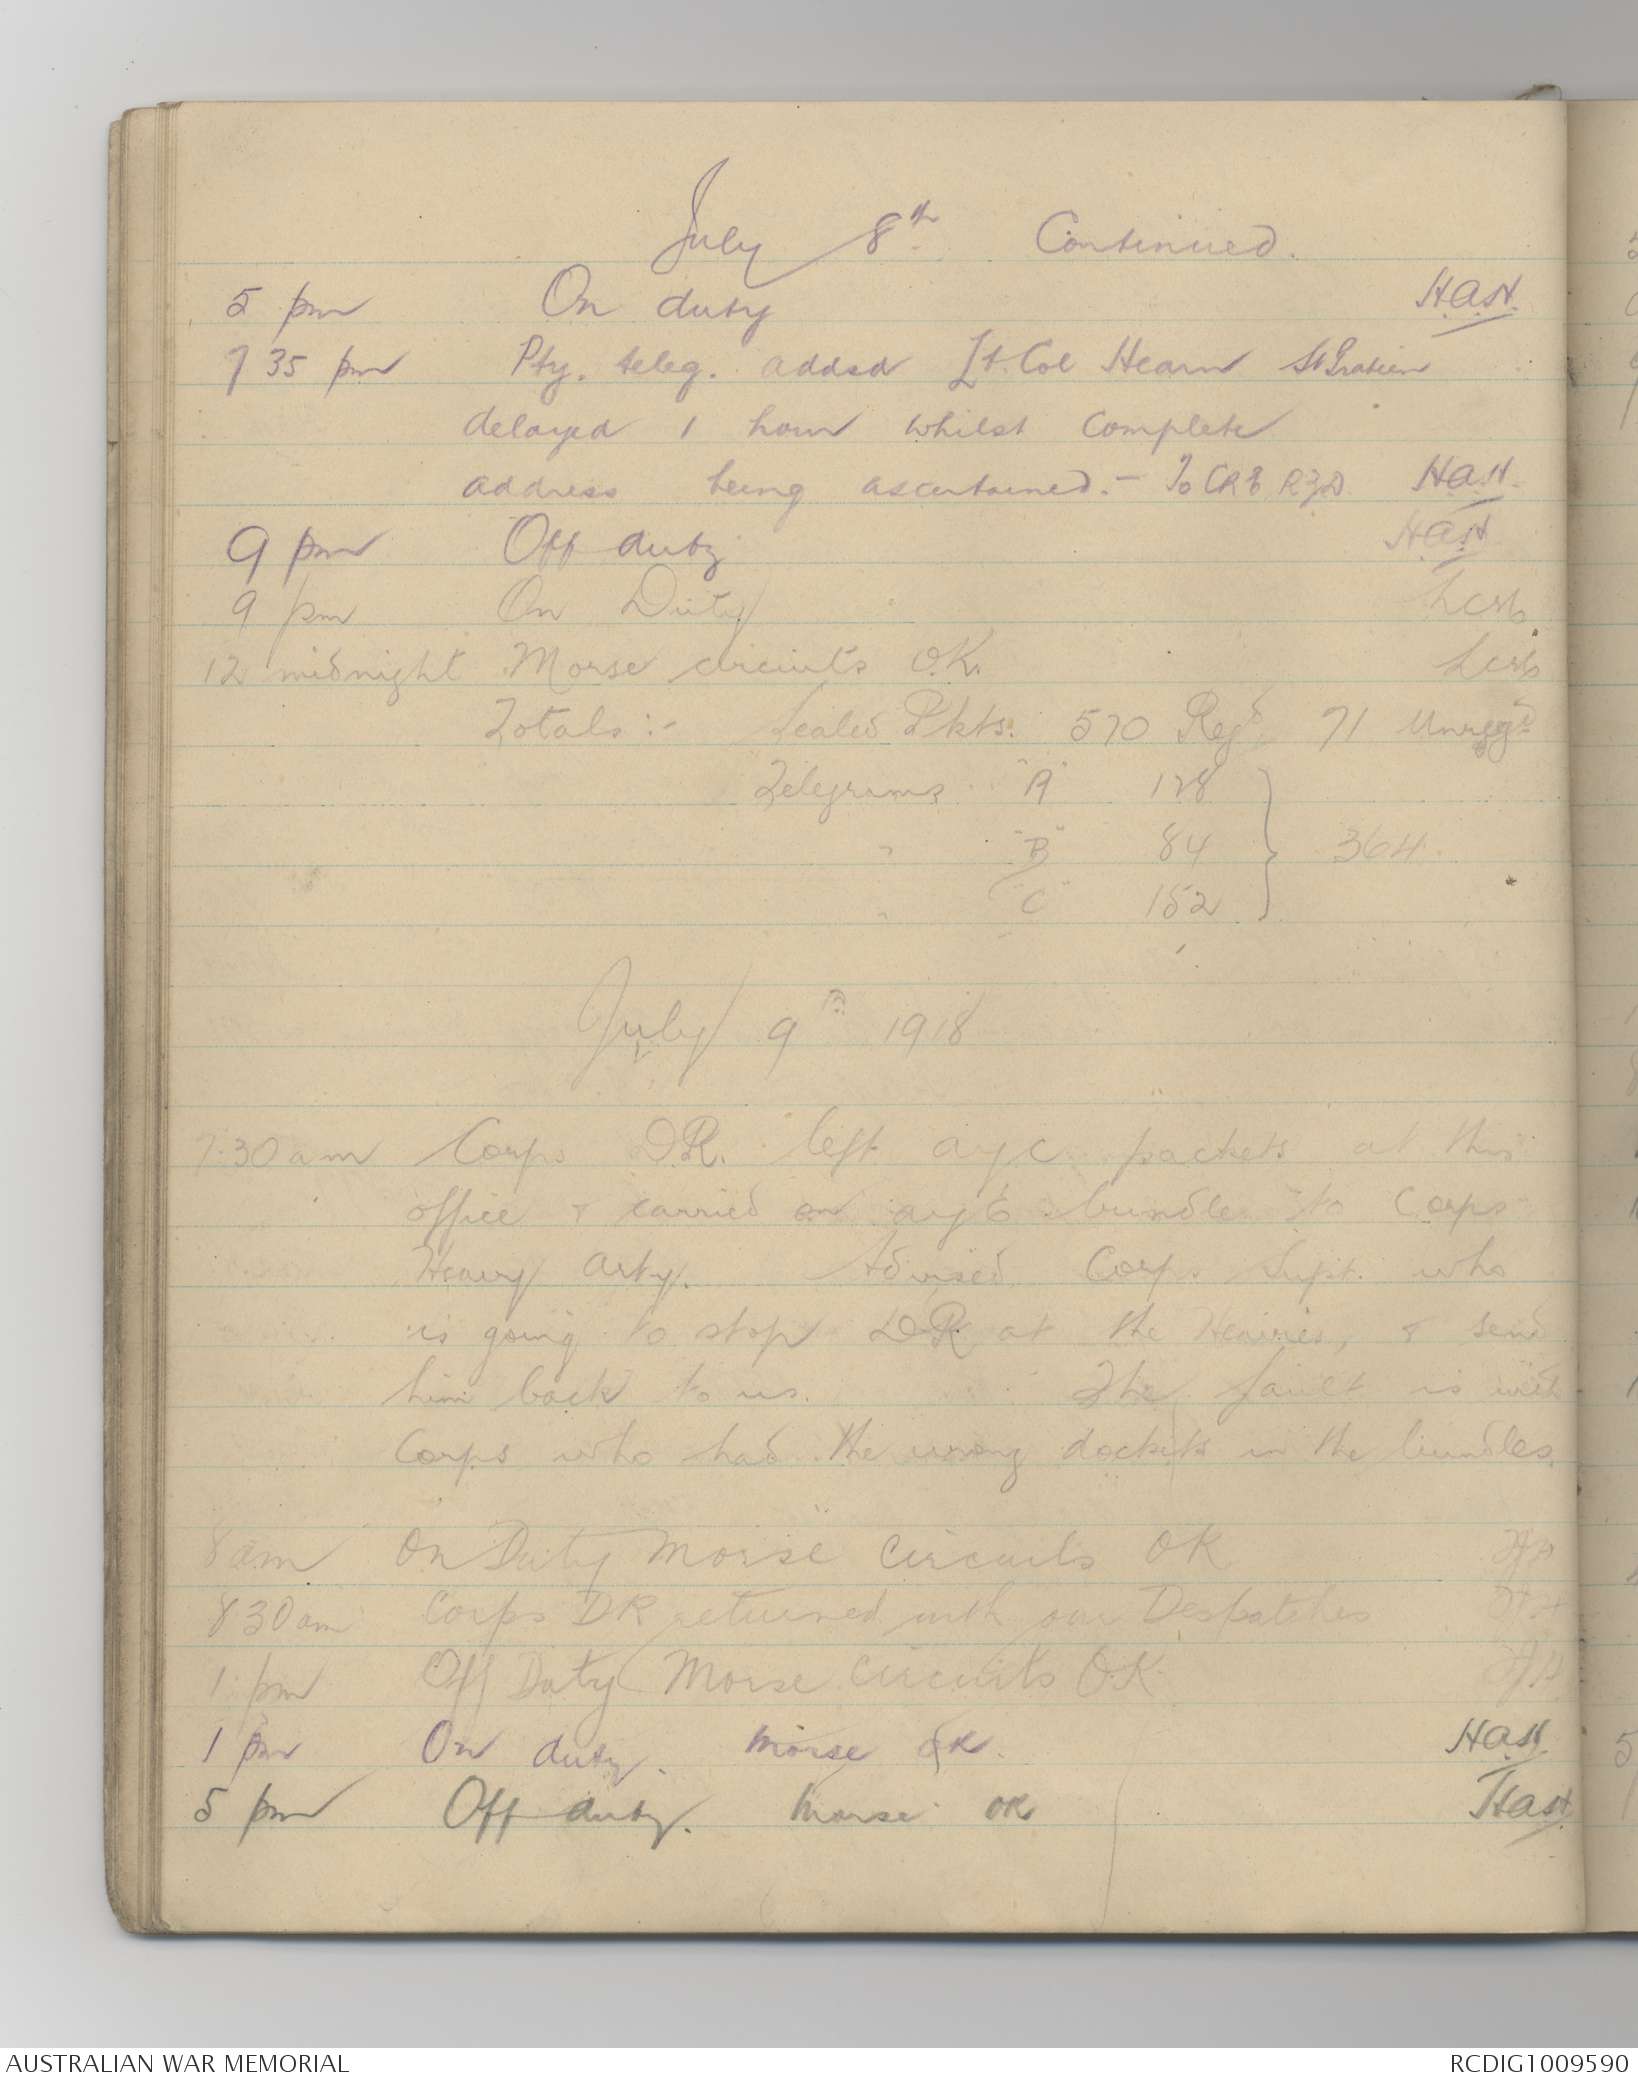 July 8th Continued.
5 pm On duty H.a.st.
7 35 pm Pty. teleg. addsd Lt. Col Hearn St Gratien
delayed 1 hour whilst complete
address being ascertained. - To H.a.st.
9 pm Off duty H.a.st
9 pm On Duty
12 midnight Morse circuits O.K.
Totals :- Sealed Pkts. 570 Regd. 71 Unregd
Telegrams "A" 128
" "B" 84 } 364
" "C" 152
July 9th 1918
7.30 am Corps D.R. left ayc packets at this
office & carried on bundle to Corps
Heavy Arty. Advised Corps Supt. who
is going to stop D.R. at the Heavies, & send
him back to us. The fault is with
Corps who had the wrong dockets in the bundles.
8 am On Duty Morse Circuits OK
8 30 am Corps DR returned with our Despatches
1 pm Off Duty Morse Circuits OK
1 pm On duty. Morse OK. H.a.st
5 pm Off duty. Morse OK H.a.st.
AUSTRALIAN WAR MEMORIAL RCDIG1009590